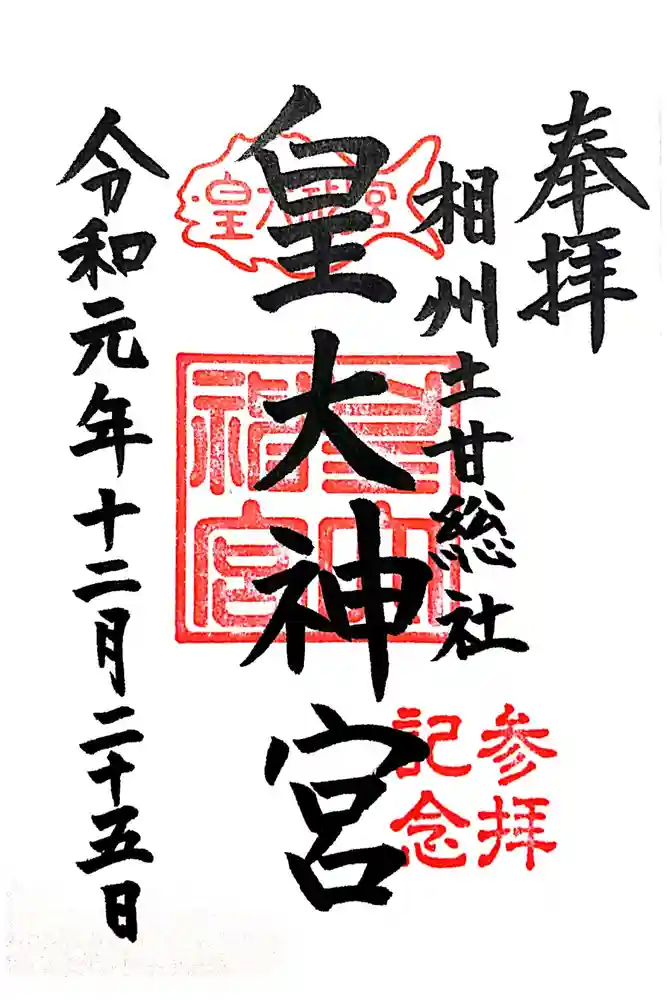 奉拝
相州土甘総社
皇大神宮
皇大神宮
令和元年十二月二十五日
参拝
記念